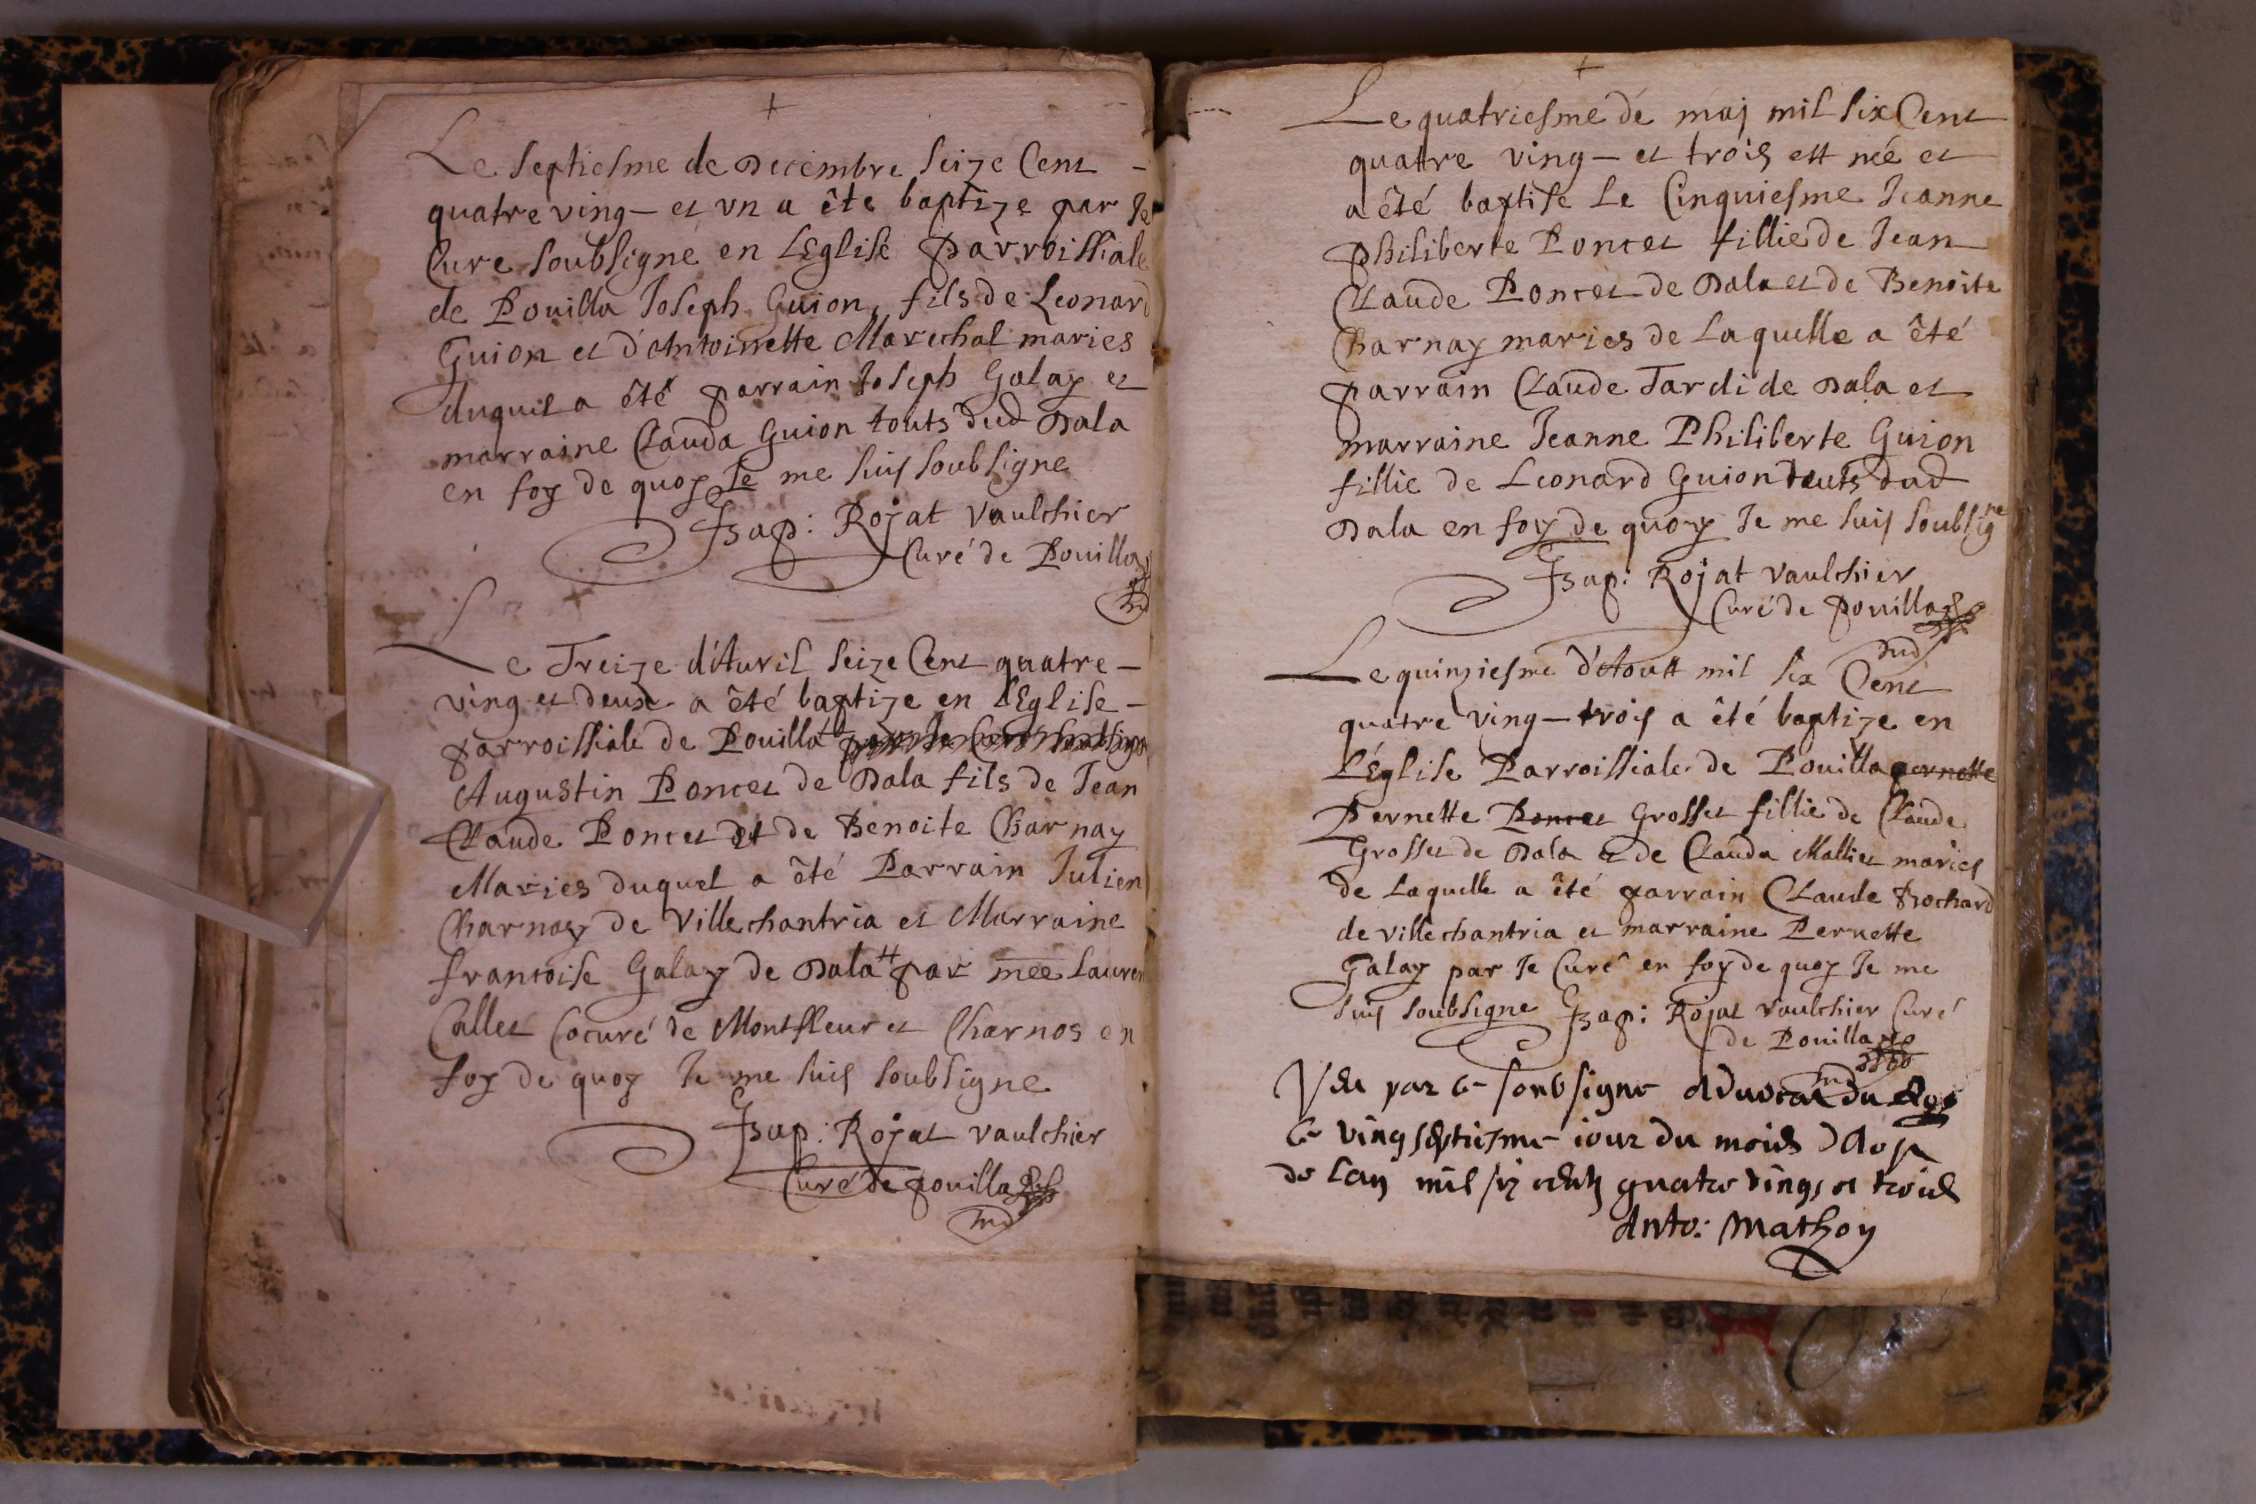 Le septiesme de Decembre seize Cent -
quatre ving - et vn a ête baptize par Je
Cure soubsigné en LEglise parroissiale
de Pouilla Joseph Guion, fils de Leonard
Guion et d'Antoinette Marechal maries
duquel a êté parrain Joseph Galay et
marraine Clauda Guion touts dud Dala
en foy de quoy Je me suis soubsigne
Rojat Vaulchier
Curé de Pouilla
Le Treize d'Auril seize Cent quatre -
ving et deux a êté baptize en l'Eglise -
parroissiale de Pouilla
Augustin Poncet de Dala fils de Jean
Claude Poncet et de Benoite Charnay
Maries duquel a êté Parrain Julien
Charnay de Villechantria et Marraine
francoise Galay de Dala par mre Lauren
Callet Cocuré de Montfleur et Charnos en
foy de quoy Je me suis soubsigne
Rojat Vaulchier
Curé de pouilla
Le quatriesme de maj mil six Cent
quatre ving - et trois est née et
a êté baptise Le Cinquiesme Jeanne
philiberte Poncet fillie de Jean
Claude Poncet de Dala et de Benoite
Charnay maries de Laquelle a êté
parrain Claude Tardi de Dala et
marraine Jeanne Philiberte Guion
fillie de Leonard Guion touts dud
Dala en foy de quoy Je me suis soubsigne
Rojat Vaulchier
Curé de pouilla
Le quinziesme d'Aoust mil six Cent
quatre ving - trois a êté baptize en
L'Eglise Parroissiale de Pouilla pernette
Pernette Poncet Grosset fillie de Claude
Grosset de Dala et de Clauda Malliet maries
de Laquelle a êté parrain Claude Brochard
de villechantria et marraine Pernette
Galay par Je Curé en foy de quoy Je me
suis soubsigne Rojat Vaulchier Curé
de Pouilla
Veu par le soubsigne Aduocat du Roy
le vingseptiesme iour du mois d'Aost
de Lan mil six centz quatre vings et trois
Anto: Mathoy